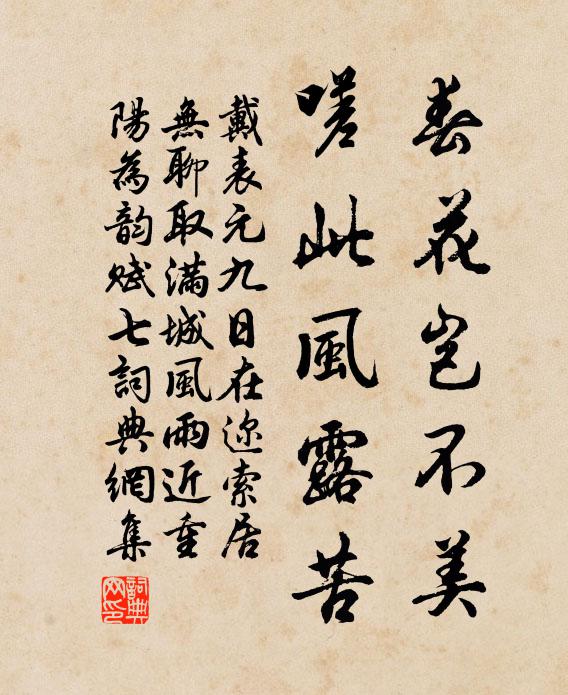 春花岂不美
嗟此風露苦
戴表元九日在迩索居
無聊取滿城風雨近重
陽為韵赋七詞典網集
詞典
网印